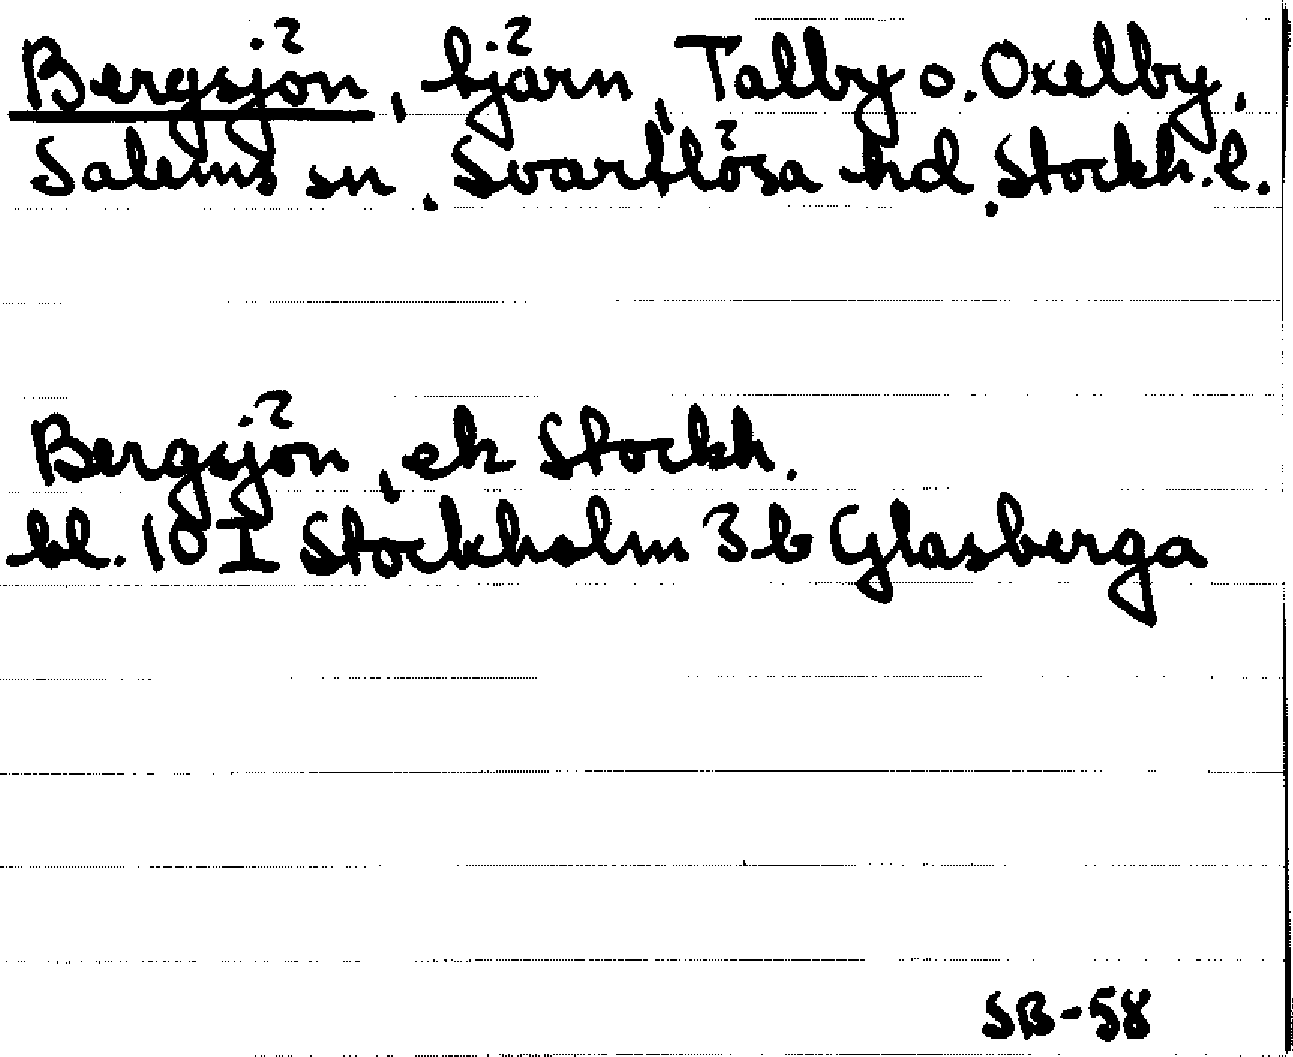 Bergsjön, tjärn, Talby o. Oxelby,
Salems sn. Svartlösa hd. Stockh. l.
Bergsjön, ek Stockh.
bl. 10 I Stockholm 3 b Glasberga
SB-58